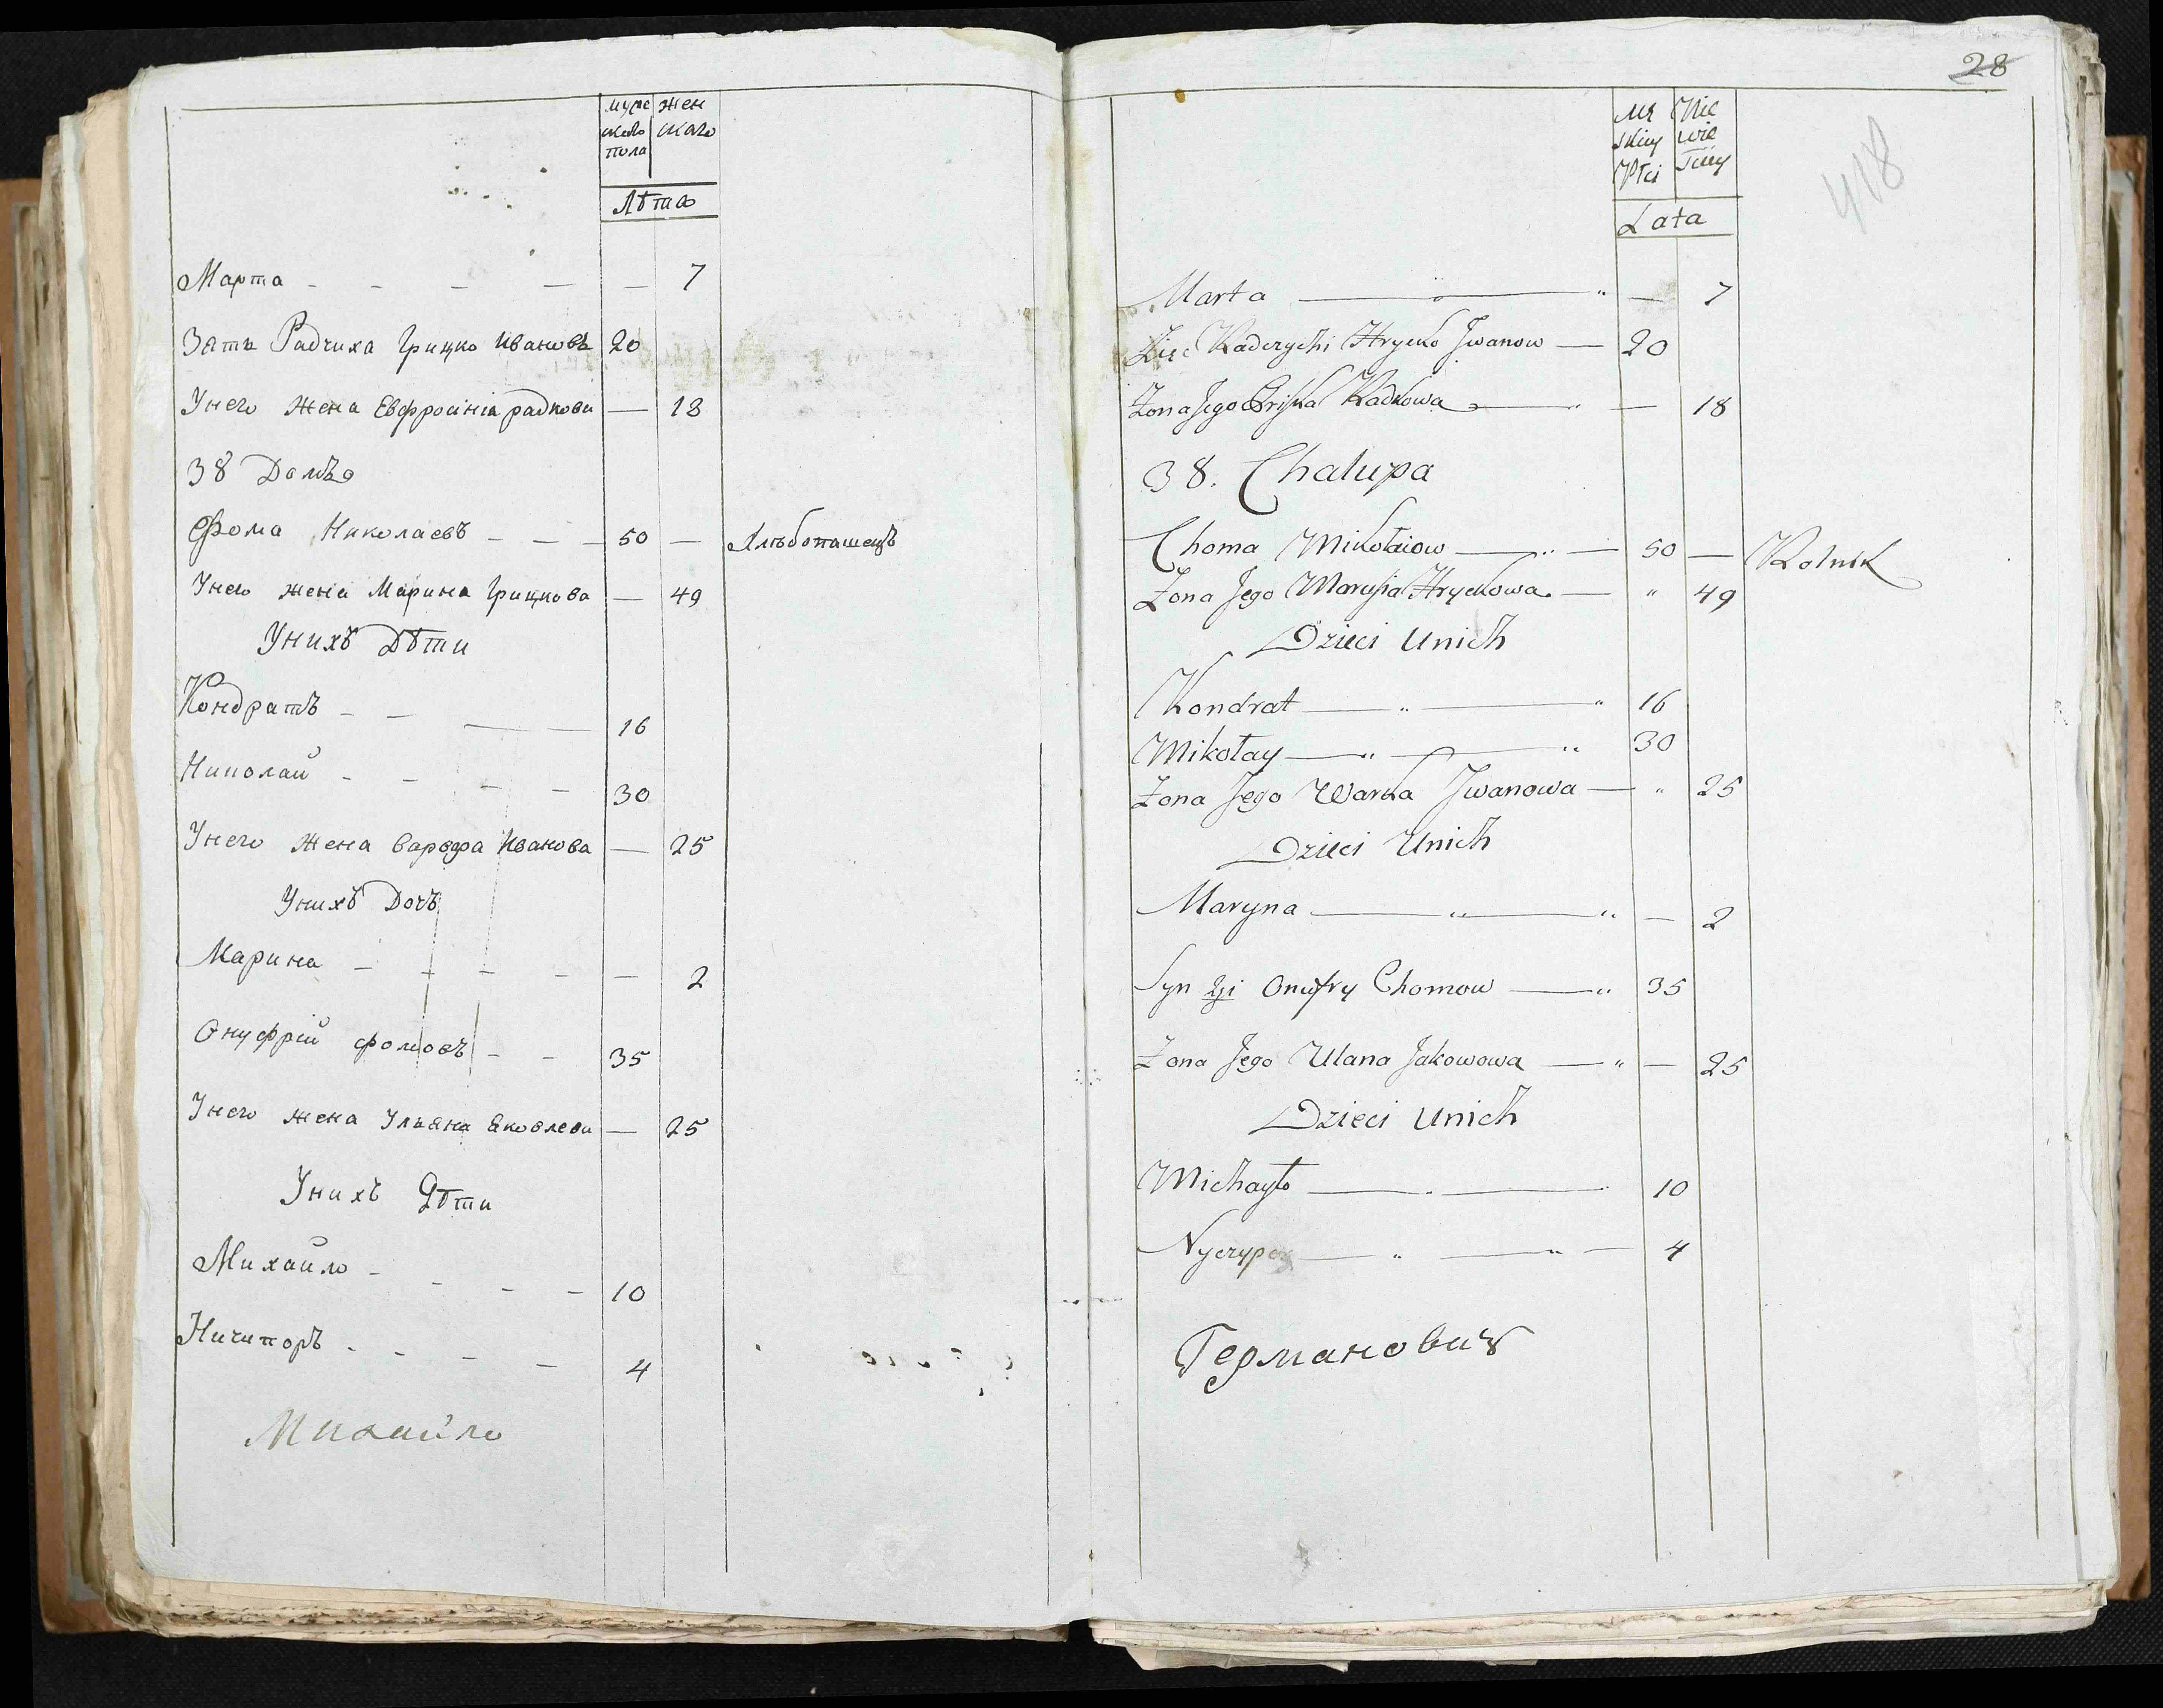 муже жен
скаго скаго
пола
Лѣта
Марта - - - - - 7
Зять Радчиха Грицко Ивановъ 20
У него жена Евфросинiя радкова — 18
38 Домъ
Фома Николаевъ - - - 50 — Хлѣбопашецъ
У него жена Марина Грицкова — 49
У нихъ Дѣти
Кондратъ - - — — 16
Николай - - - - - 30
У него жена Варвара Иванова — 25
У нихъ Дочь
Марина - - - - - 2
Онуфрiй фомовъ - - 35
У него жена Ульяна Яковлева — 25
У нихъ Дѣти
Михайло - - - - 10
Ничипоръ - - - - 4
Михайло
28
418
Mę Nie
skiey wie
Płci sciey
Lata
Marta — — 7
Zięć Radczychi Hrycko Jwanow — 20
Zona Jego Radkowa — — 18
38. Chalupa
Choma Mikołaiow — 50 — Rolnik
Zona Jego Marusia Hryckowa — " 49
Dzieci Unich
Kondrat — " — " 16
Mikołay — " — " 30
Zona Jego Warka Jwanowa — " 25
Dzieci Unich
Maryna — " — " — 2
Syn 2gi Onufry Chomow — " 35
Zona Jego Ulana Jakowowa — " — 25
Dzieci Unich
Michayło — 10
Nyczypor — " — " — 4
Германовичъ